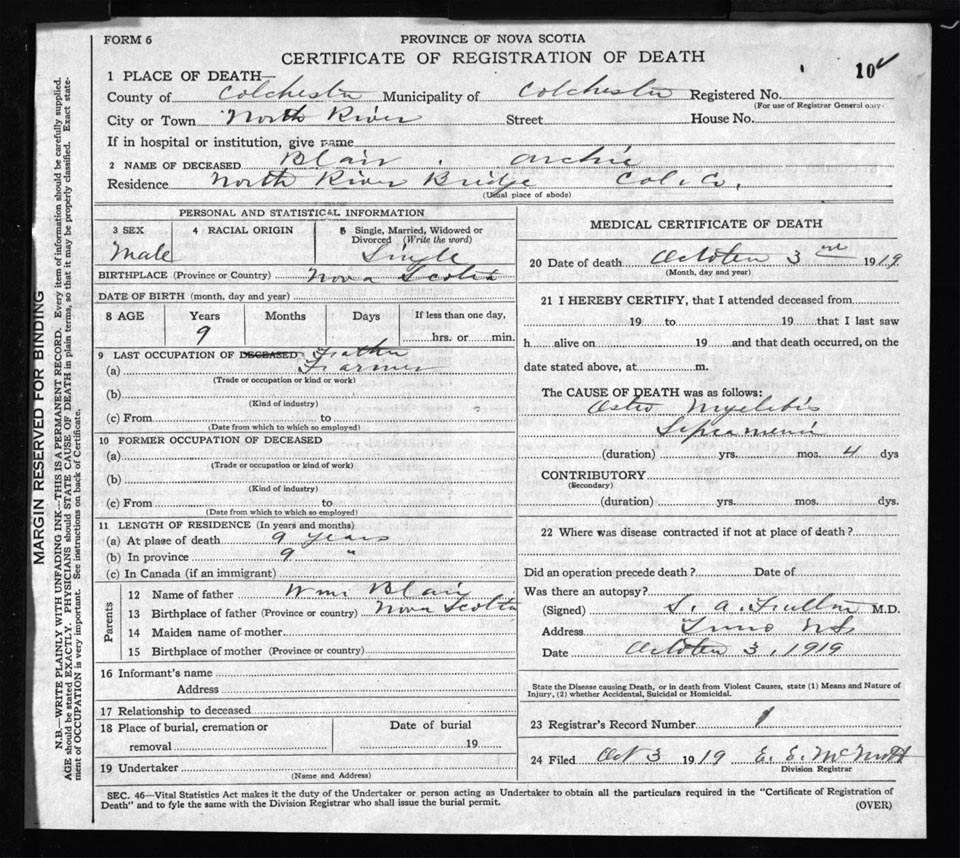 FORM 6
PROVINCE OF NOVA SCOTIA
CERTIFICATE OF REGISTRATION OF DEATH
10
1 PLACE OF DEATH—
County of Colchester Municipality of Colchester Registered No.
(For use of Registrar General only.
City or Town North River Street House No.
If in hospital or institution, give name
2 NAME OF DECEASED Blair, Archie
Residence North River Bridge Col. Co.
(Usual place of abode)
PERSONAL AND STATISTICAL INFORMATION
3 SEX 4 RACIAL ORIGIN 5 Single, Married, Widowed or
Divorced (Write the word)
Male Single
BIRTHPLACE (Province or Country) Nova Scotia
DATE OF BIRTH (month, day and year)
8 AGE Years Months Days If less than one day,
9 hrs. or min.
9 LAST OCCUPATION OF DECEASED Father
(a) Farmer
(Trade or occupation or kind or work)
(b)
(Kind of industry)
(c) From to
(Date from which to which so employed)
10 FORMER OCCUPATION OF DECEASED
(a)
(Trade or occupation or kind of work)
(b)
(Kind of industry)
(c) From to
(Date from which to which so employed)
11 LENGTH OF RESIDENCE (In years and months)
(a) At place of death 9 years
(b) In province 9 "
(c) In Canada (if an immigrant)
Parents
12 Name of father Wm Blair
13 Birthplace of father (Province or country) Nova Scotia
14 Maiden name of mother
15 Birthplace of mother (Province or country)
16 Informant's name
Address
17 Relationship to deceased
18 Place of burial, cremation or Date of burial
removal 19
19 Undertaker
(Name and Address)
MEDICAL CERTIFICATE OF DEATH
20 Date of death October 3 rd 1919
(Month, day and year)
21 I HEREBY CERTIFY, that I attended deceased from
19 to 19 that I last saw
h alive on 19 and that death occurred, on the
date stated above, at m.
The CAUSE OF DEATH was as follows:
Osteo Myelitis
(duration) yrs. mos. 4 dys
CONTRIBUTORY
(Secondary)
(duration) yrs. mos. dys.
22 Where was disease contracted if not at place of death?
Did an operation precede death? Date of
Was there an autopsy?
(Signed) S. A. Fulton M.D.
Address Truro NS
Date October 3, 1919
State the Disease causing Death, or in death from Violent Causes, state (1) Means and Nature of
Injury, (2) whether Accidental, Suicidal or Homicidal.
23 Registrar's Record Number 1
24 Filed Oct 3 1919 E. E. McNutt
Division Registrar
SEC. 46—Vital Statistics Act makes it the duty of the Undertaker or person acting as Undertaker to obtain all the particulars required in the "Certificate of Registration of
Death" and to fyle the same with the Division Registrar who shall issue the burial permit.
(OVER)
MARGIN RESERVED FOR BINDING
N.B.—WRITE PLAINLY WITH UNFADING INK—THIS IS A PERMANENT RECORD. Every item of information should be carefully supplied.
AGE should be stated EXACTLY. PHYSICIANS should STATE CAUSE OF DEATH in plain terms, so that it may be properly classified. Exact state-
ment of OCCUPATION is very important. See instructions on back of Certificate.